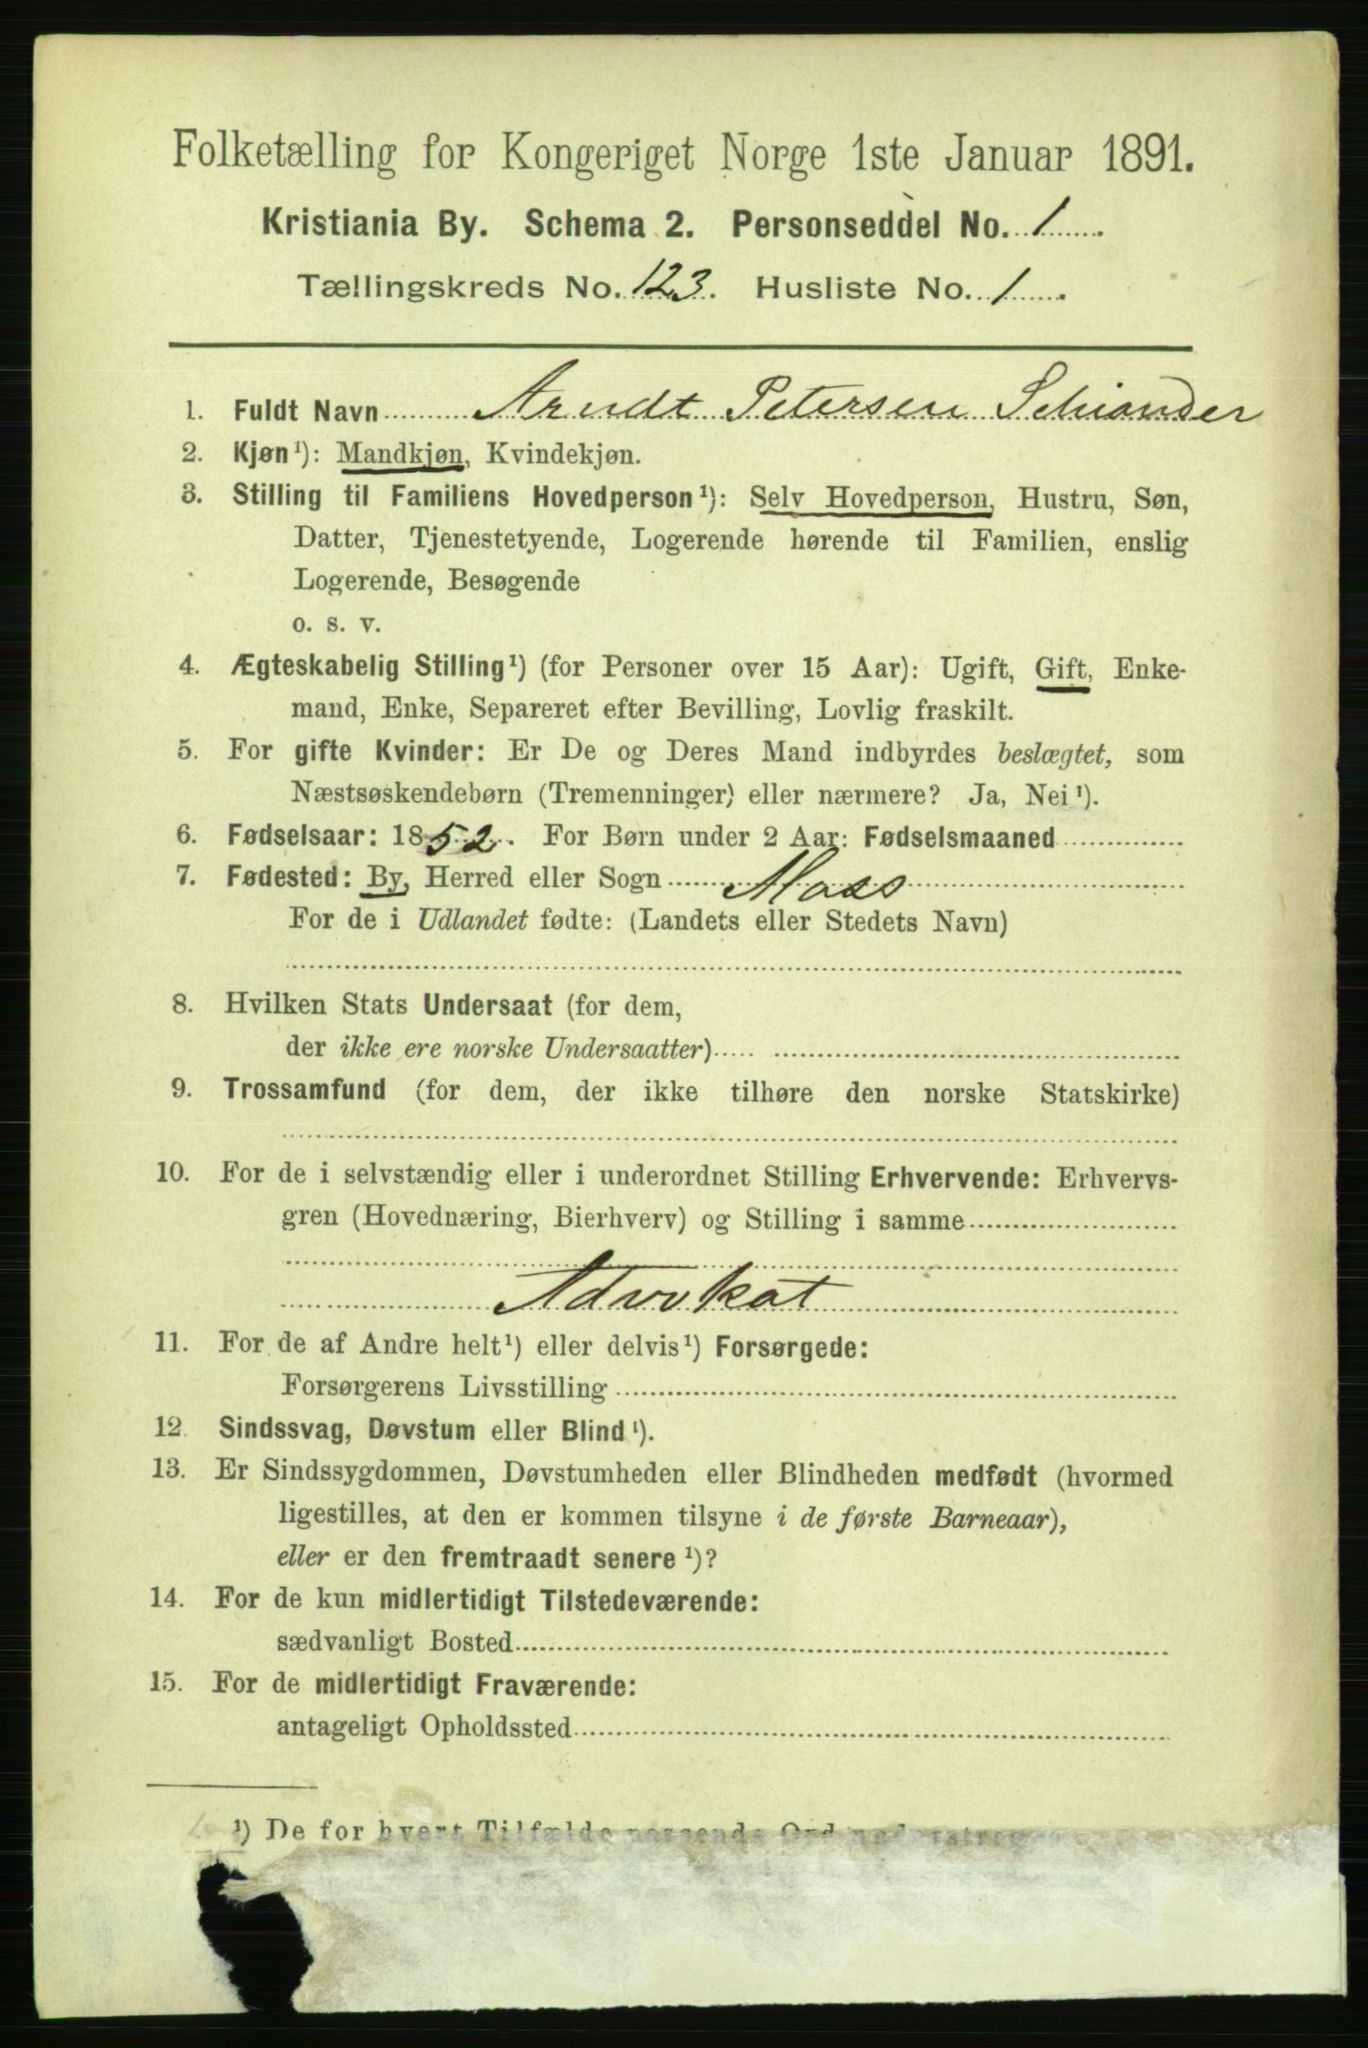 Folketælling for Kongeriget Norge 1ste Januar 1891.
Kristiania By. Schema 2. Personseddel No. 1.
Tællingskreds No. 123. Husliste No. 1.
1. Fuldt Navn Arndt Petersen Schiander
2. Kjøn¹): Mandkjøn, Kvindekjøn.
3. Stilling til Familiens Hovedperson¹): Selv Hovedperson, Hustru, Søn,
Datter, Tjenestetyende, Logerende hørende til Familien, enslig
Logerende, Besøgende
o. s. v.
4. Ægteskabelig Stilling¹) (for Personer over 15 Aar): Ugift, Gift, Enke-
mand, Enke, Separeret efter Bevilling, Lovlig fraskilt.
5. For gifte Kvinder: Er De og Deres Mand indbyrdes beslægtet, som
Næstsøskendebørn (Tremenninger) eller nærmere? Ja, Nei¹).
6. Fødselsaar: 1852. For Børn under 2 Aar: Fødselsmaaned
7. Fødested: By, Herred eller Sogn Moss
For de i Udlandet fødte: (Landets eller Stedets Navn)
8. Hvilken Stats Undersaat (for dem,
der ikke ere norske Undersaatter)
9. Trossamfund (for dem, der ikke tilhøre den norske Statskirke)
10. For de i selvstændig eller i underordnet Stilling Erhvervende: Erhvervs-
gren (Hovednæring, Bierhverv) og Stilling i samme
Advokat
11. For de af Andre helt¹) eller delvis¹) Forsørgede:
Forsørgerens Livsstilling
12. Sindssvag, Døvstum eller Blind¹).
13. Er Sindssygdommen, Døvstumheden eller Blindheden medfødt (hvormed
ligestilles, at den er kommen tilsyne i de første Barneaar),
eller er den fremtraadt senere¹)?
14. For de kun midlertidigt Tilstedeværende:
sædvanligt Bosted
15. For de midlertidigt Fraværende:
antageligt Opholdssted
¹) De for hvert Tilfælde passende Ord